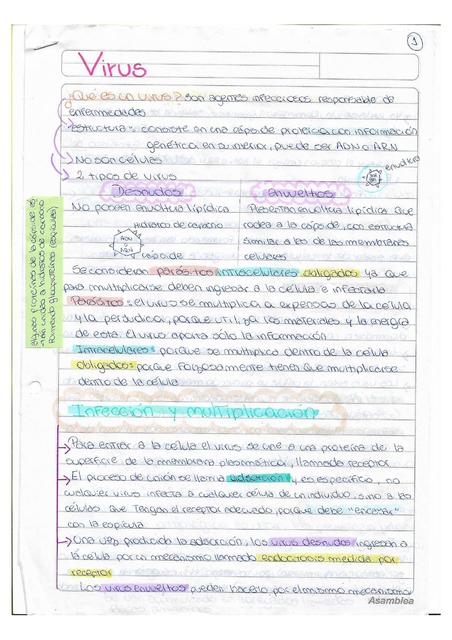 1
Virus
¿Qué es un virus? Son agentes infecciosos responsable de
enfermedades
Estructura: consiste en una cápside proteica con información
genética en su interior, puede ser ADN o ARN
No son células
2 tipos de virus
envoltura
Desnudos
envueltos
No poseen envoltura lipídica
Presentan envoltura lipídica que
rodea a la cápside, con estructura
similar a los de las membranas
celulares
Hidratos de carbono
ADN o ARN
cápside
algunas proteínas de la cápside están
unidas a hidratos de carbono
formando glucoproteínas (espículas)
Se consideran parásitos intracelulares obligados ya que
para multiplicarse deben ingresar a la célula e infectarla
Parásitos: el virus se multiplica a expensas de la célula
y la perjudica, porque utiliza los materiales y la energía
de esta. El virus aporta sólo la información
Intracelulares: porque se multiplica dentro de la célula
obligados: porque forzosamente tienen que multiplicarse
dentro de la célula
Infección y multiplicación
Para entrar a la célula el virus se une a una proteína de la
superficie de la membrana plasmática, llamada receptor
El proceso de unión se llama adsorción y es específico, no
cualquier virus infecta a cualquier célula de un individuo, sino a las
células que tengan el receptor adecuado, porque debe "encajar"
con la espícula
Una vez producida la adsorción, los virus desnudos ingresan a
la célula por un mecanismo llamado endocitosis mediada por
receptor
Los virus envueltos pueden hacerlo por el mismo mecanismo
Asamblea